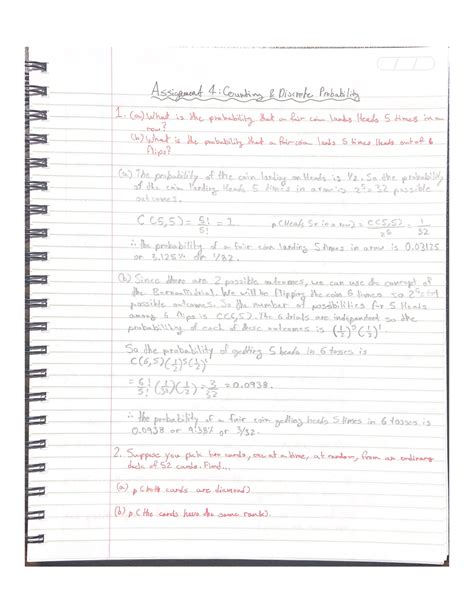 Assignment 4: Counting & Discrete Probability
1. (a) What is the probability that a fair coin lands Heads 5 times in a
row?
(b) What is the probability that a fair coin lands 5 times Heads out of 6
flips?
(a) The probability of the coin landing on Heads is 1/2. So the probability
of the coin landing Heads 5 times in a row is 2^5 = 32 possible
outcomes.
C(5,5) = 5!/5! = 1 p(Heads 5x in a row) = C(5,5)/2^5 = 1/32
∴ the probability of a fair coin landing 5 times in a row is 0.03125
or 3.125% or 1/32.
(b) Since there are 2 possible outcomes, we can use the concept of
the Bernoulli trial. We will be flipping the coin 6 times so 2^6 = 64
possible outcomes. So the number of possibilities for 5 Heads
among 6 flips is C(6,5). The 6 trials are independent so the
probability of each of these outcomes is (1/2)^5(1/2)^1
So the probability of getting 5 heads in 6 tosses is
C(6,5)(1/2)^5(1/2)^1
= 6!/5! (1/2^5)(1/2) = 3/32 = 0.0938.
∴ the probability of a fair coin getting heads 5 times in 6 tosses is
0.0938 or 9.38% or 3/32.
2. Suppose you pick two cards, one at a time, at random, from an ordinary
deck of 52 cards. Find...
(a) p(both cards are diamond)
(b) p(the cards have the same rank).